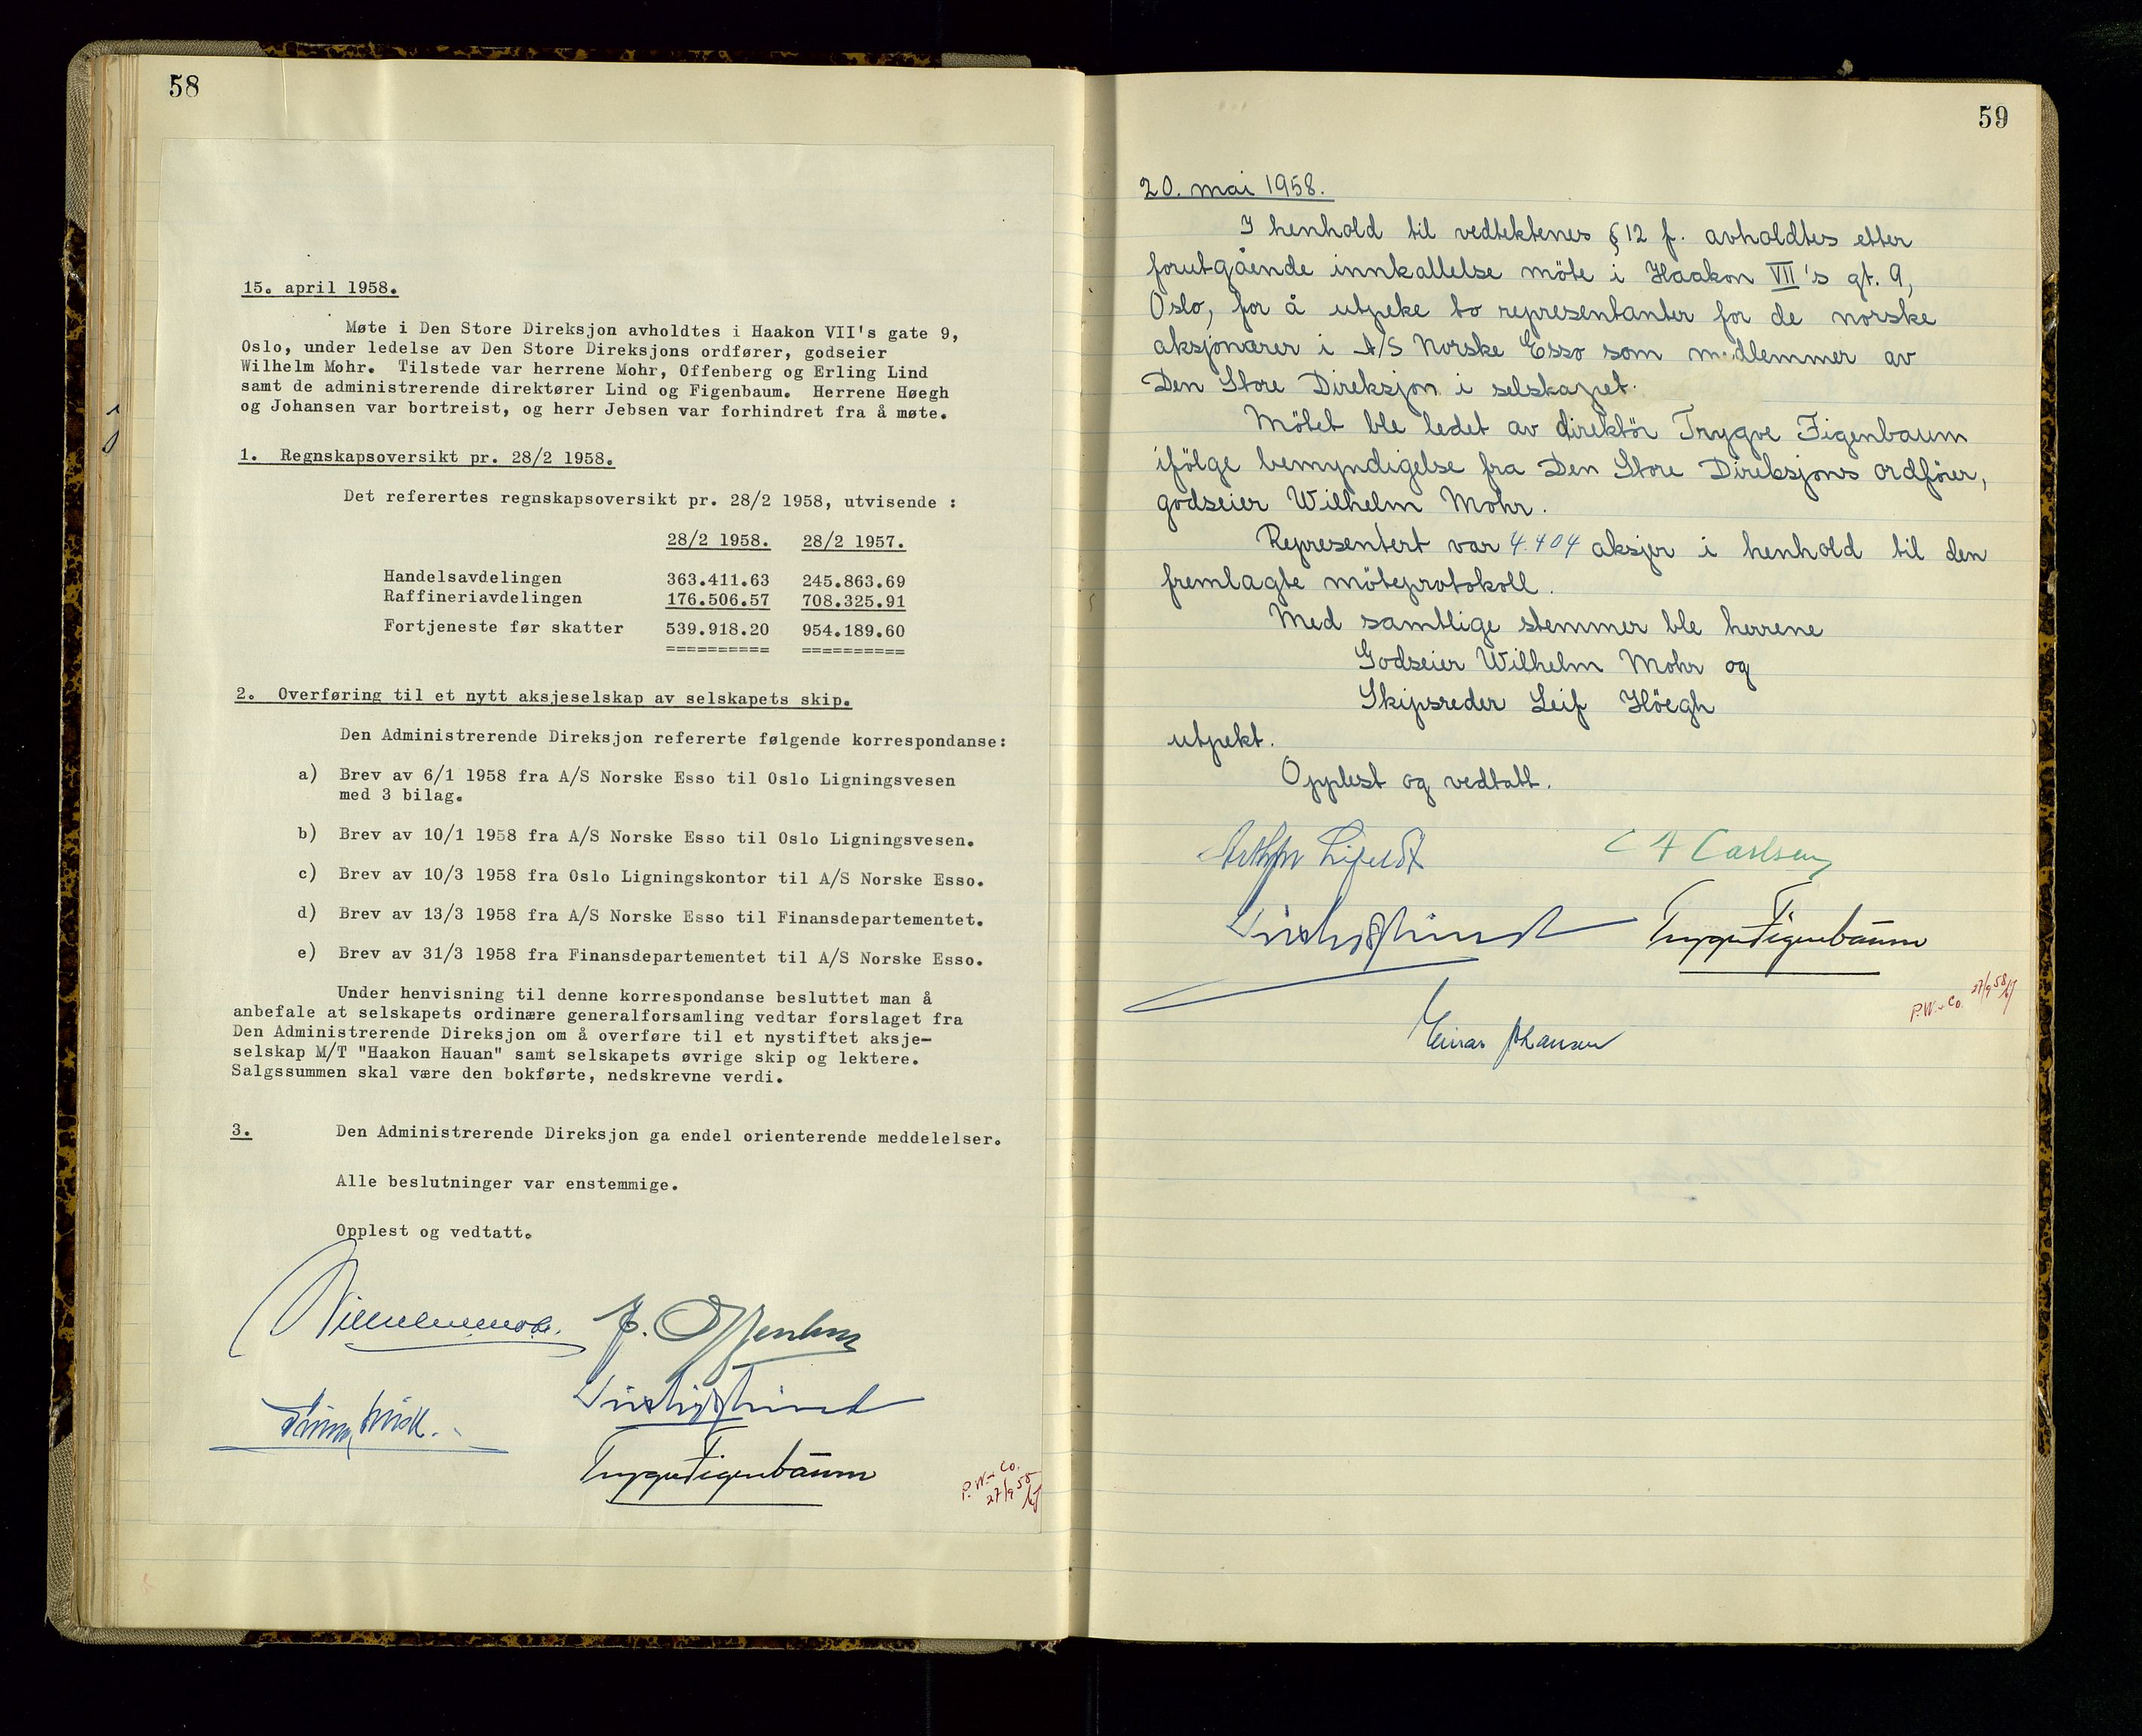 58
15. april 1958.
Møte i Den Store Direksjon avholdtes i Haakon VII's gate 9,
Oslo, under ledelse av Den Store Direksjons ordfører, godseier
Wilhelm Mohr. Tilstede var herrene Mohr, Offenberg og Erling Lind
samt de administrerende direktører Lind og Figenbaum. Herrene Høegh
og Johansen var bortreist, og herr Jebsen var forhindret fra å møte.
1. Regnskapsoversikt pr. 28/2 1958.
Det referertes regnskapsoversikt pr. 28/2 1958, utvisende :
28/2 1958. 28/2 1957.
Handelsavdelingen 363.411.63 245.863.69
Raffineriavdelingen 176.506.57 708.325.91
Fortjeneste før skatter 539.918.20 954.189.60
========== ==========
2. Overføring til et nytt aksjeselskap av selskapets skip.
Den Administrerende Direksjon refererte følgende korrespondanse:
a) Brev av 6/1 1958 fra A/S Norske Esso til Oslo Ligningsvesen
med 3 bilag.
b) Brev av 10/1 1958 fra A/S Norske Esso til Oslo Ligningsvesen.
c) Brev av 10/3 1958 fra Oslo Ligningskontor til A/S Norske Esso.
d) Brev av 13/3 1958 fra A/S Norske Esso til Finansdepartementet.
e) Brev av 31/3 1958 fra Finansdepartementet til A/S Norske Esso.
Under henvisning til denne korrespondanse besluttet man å
anbefale at selskapets ordinære generalforsamling vedtar forslaget fra
Den Administrerende Direksjon om å overføre til et nystiftet aksje-
selskap M/T "Haakon Hauan" samt selskapets øvrige skip og lektere.
Salgssummen skal være den bokførte, nedskrevne verdi.
3. Den Administrerende Direksjon ga endel orienterende meddelelser.
Alle beslutninger var enstemmige.
Opplest og vedtatt.
Trygve Figenbaum
P.W. & Co.
27/9 58
59
20. mai 1958.
I henhold til vedtektenes § 12 f. avholdtes etter
forutgående innkallelse möte i Haakon VII's gt. 9,
Oslo, for å utpeke to representanter for de norske
aksjonærer i A/S Norske Esso som medlemmer av
Den Store Direksjon i selskapet.
Mötet ble ledet av direktör Trygve Figenbaum
ifölge bemyndigelse fra Den Store Direksjons ordförer,
godseier Wilhelm Mohr.
Representert var 4.404 aksjer i henhold til den
fremlagte möteprotokoll.
Med samtlige stemmer ble herrene
Godseier Wilhelm Mohr og
Skipsreder Leif Höegh
utpekt.
Opplest og vedtatt.
C A Carlsen
Trygve Figenbaum
P.W. & Co. 27/9 58
Einar Johansen